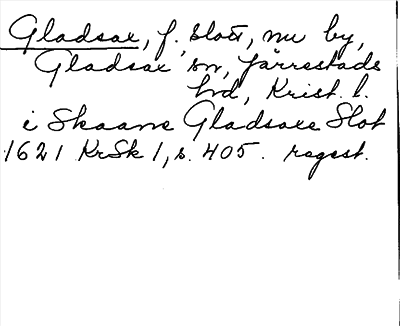 Gladsax, f. slott, nu by,
Gladsax sn, Järrestads
hd, Krist. l.
i Skaane Gladsaxe Slot
1621 KrSk 1, s. 405. regest.